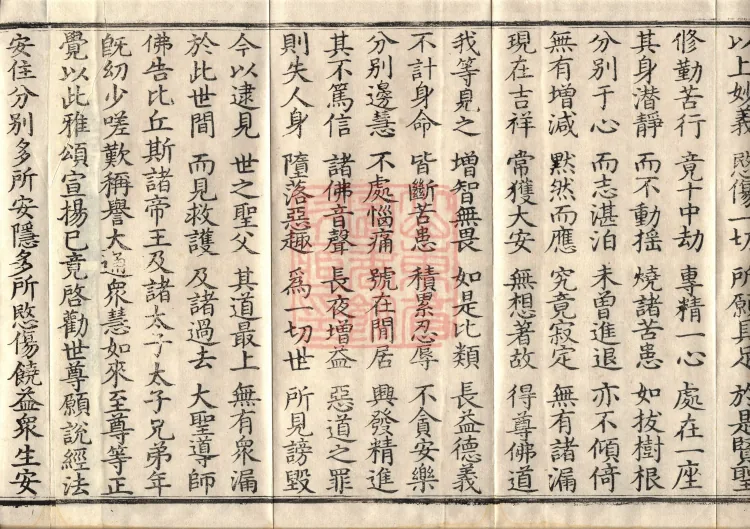 以上妙義　愍傷一切　所願具足　於是賢聖
修勤苦行　竟十中劫　專精一心　處在一座
其身潛靜　而不動揺　燒諸苦患　如拔樹根
分別于心　而志湛泊　未曾進退　亦不傾倚
無有增減　黙然而應　究竟寂定　無有諸漏
現在吉祥　常獲大安　無想著故　得尊佛道
我等見之　增智無畏　如是比類　長益德義
不計身命　皆斷苦患　積累忍辱　不貪安樂
分別邊慧　不處惱痛　號在閒居　興發精進
其不篤信　諸佛音聲　長夜增益　惡道之罪
則失人身　墮落惡趣　爲一切世　所見謗毀
今以逮見　世之聖父　其道最上　無有衆漏
於此世間　而見救護　及諸過去　大聖導師
佛告比丘斯諸帝王及諸太子太子兄弟年
既幼少嗟歎稱譽大通衆慧如來至尊等正
覺以此雅頌宣揚已竟啓勸世尊願說經法
安住分別多所安隱多所愍傷饒益衆生安